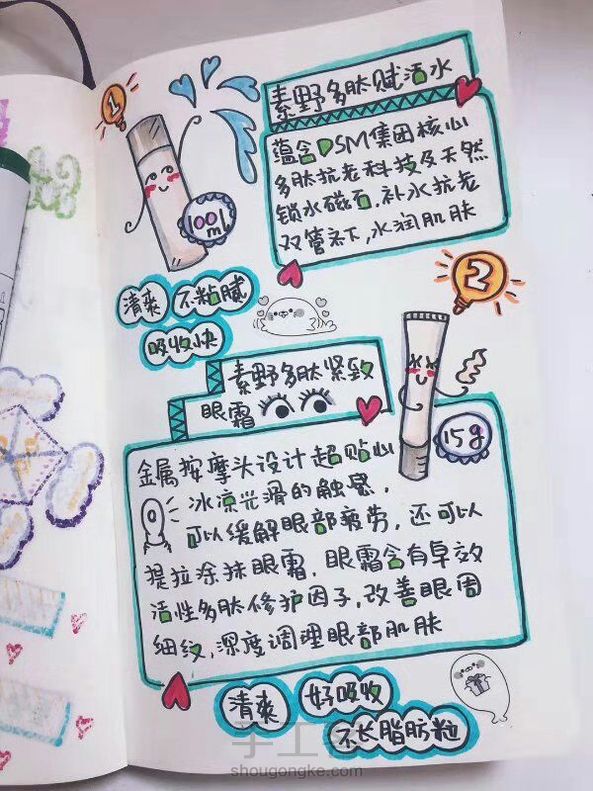 1
素野多肽赋活水
蕴含DSM集团核心
多肽抗老科技及天然
锁水磁石,补水抗老
双管齐下,水润肌肤
100ml
清爽 不粘腻
吸收快
2
素野多肽紧致
眼霜
15g
金属按摩头设计超贴心
冰凉光滑的触感,
可以缓解眼部疲劳,还可以
提拉涂抹眼霜.眼霜含有卓效
活性多肽修护因子,改善眼周
细纹,深度调理眼部肌肤
清爽 好吸收
不长脂肪粒
手工客
shougongke.com